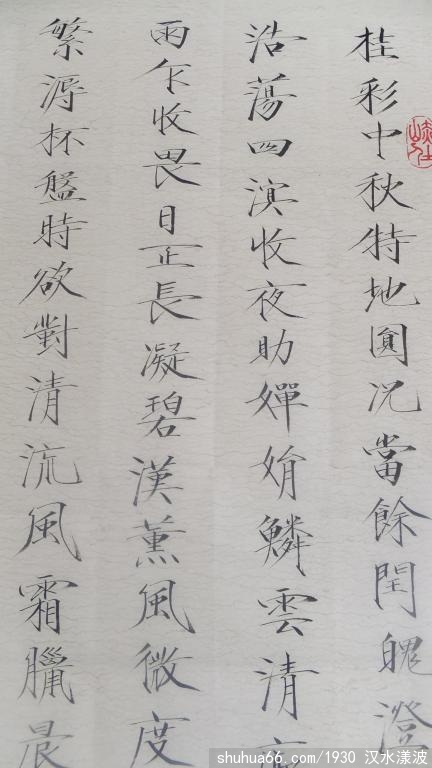 桂彩中秋特地圓况當餘閏魄澄
浩蕩四溟收夜助嬋娟鱗雲清
雨乍收畏日正長凝碧漢薰風微度
繁溽杯盤時欲對清流風霜臘晨
shuhua66.com/1930 汉水漾波